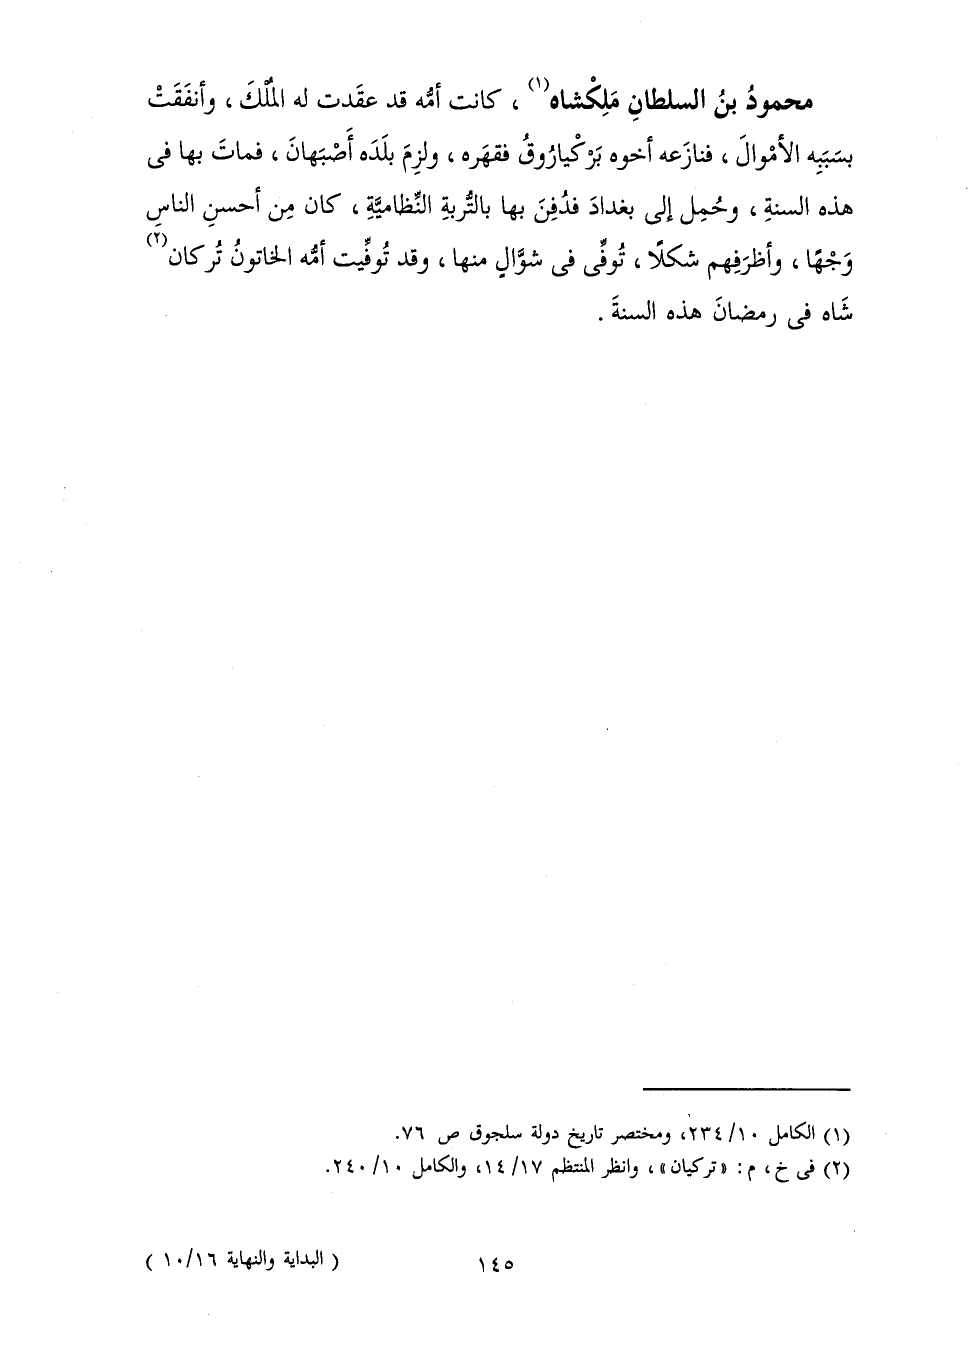 محمودُ بنُ السلطانِ مَلِكْشاه(١) ، كانت أمُّه قد عقَدت له المُلْكَ ، وأنفَقَتْ
بسَبَبِه الأمْوالَ ، فنازَعه أخوه بَرْكيارُوقُ فقهَره ، ولزِمَ بلَدَه أَصْبَهانَ ، فماتَ بها فى
هذه السنةِ ، وحُمِل إلى بغدادَ فدُفِنَ بها بالتُّربةِ النِّظاميَّةِ ، كان مِن أحسنِ الناسِ
وَجْهًا ، وأظرَفِهم شكلًا ، تُوفِّى فى شوَّالٍ منها ، وقد تُوفِّيت أمُّه الخاتونُ تُركان(٢)
شَاه فى رمضانَ هذه السنةَ .
(١) الكامل ١٠/ ٢٣٤، ومختصر تاريخ دولة سلجوق ص ٧٦.
(٢) فى خ ، م : «تركيان» ، وانظر المنتظم ١٧/ ١٤، والكامل ١٠/ ٢٤٠.
١٤٥
( البداية والنهاية ١٠/١٦ )